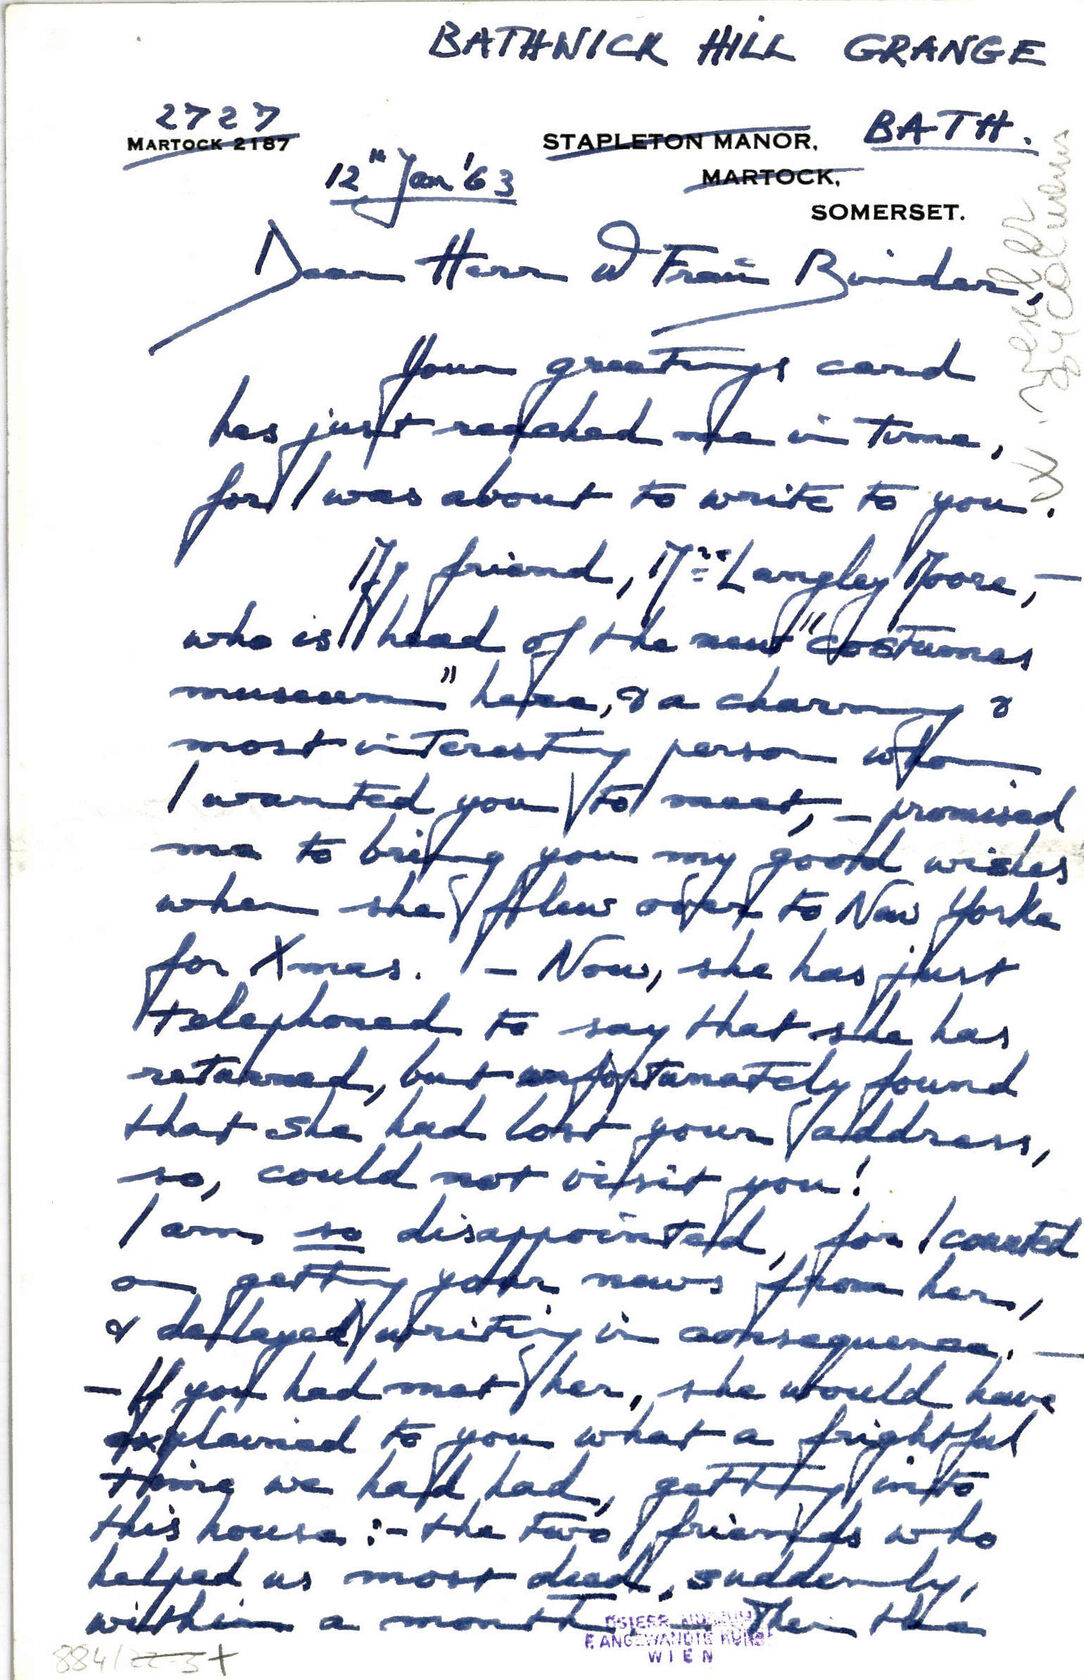 BATHWICK HILL GRANGE
2727
MARTOCK 2187
STAPLETON MANOR,
BATH.
12th Jan '63
MARTOCK,
SOMERSET.
Dear Herr & Frau Binder,
Your greetings card
has just reached me in time,
for I was about to write to you.
My friend, Mrs Langley Moore, –
who is head of the new "costumes
museum" here, & a charming &
most interesting person whom
I wanted you to meet, – promised
me to bring you my good wishes
when she flew over to New Yorke
for Xmas. – Now, she has just
telephoned to say that she has
returned, but unfortunately found
that she had lost your address,
so, could not visit you!
I am so disappointed, for I counted
on getting your news from her,
& delayed writing in consequence. –
– If you had met her, she would have
explained to you what a frightful
time we had had, getting into
this house :– the two friends who
helped us most died, suddenly,
within a month, – Then the
ÖSTERR. MUSEUM
F. ANGEWANDTE KUNST
WIEN
884/